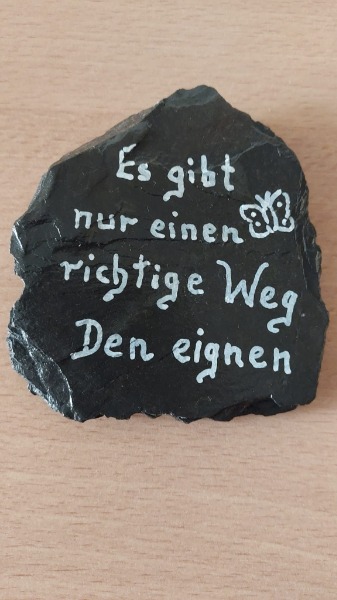 Es gibt
nur einen
richtige Weg
Den eignen